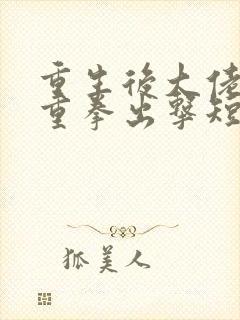 重生后大佬
重拳出擊短
狐美人